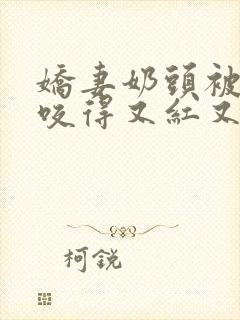 嬌妻奶頭被
咬得又紅又
柯銳